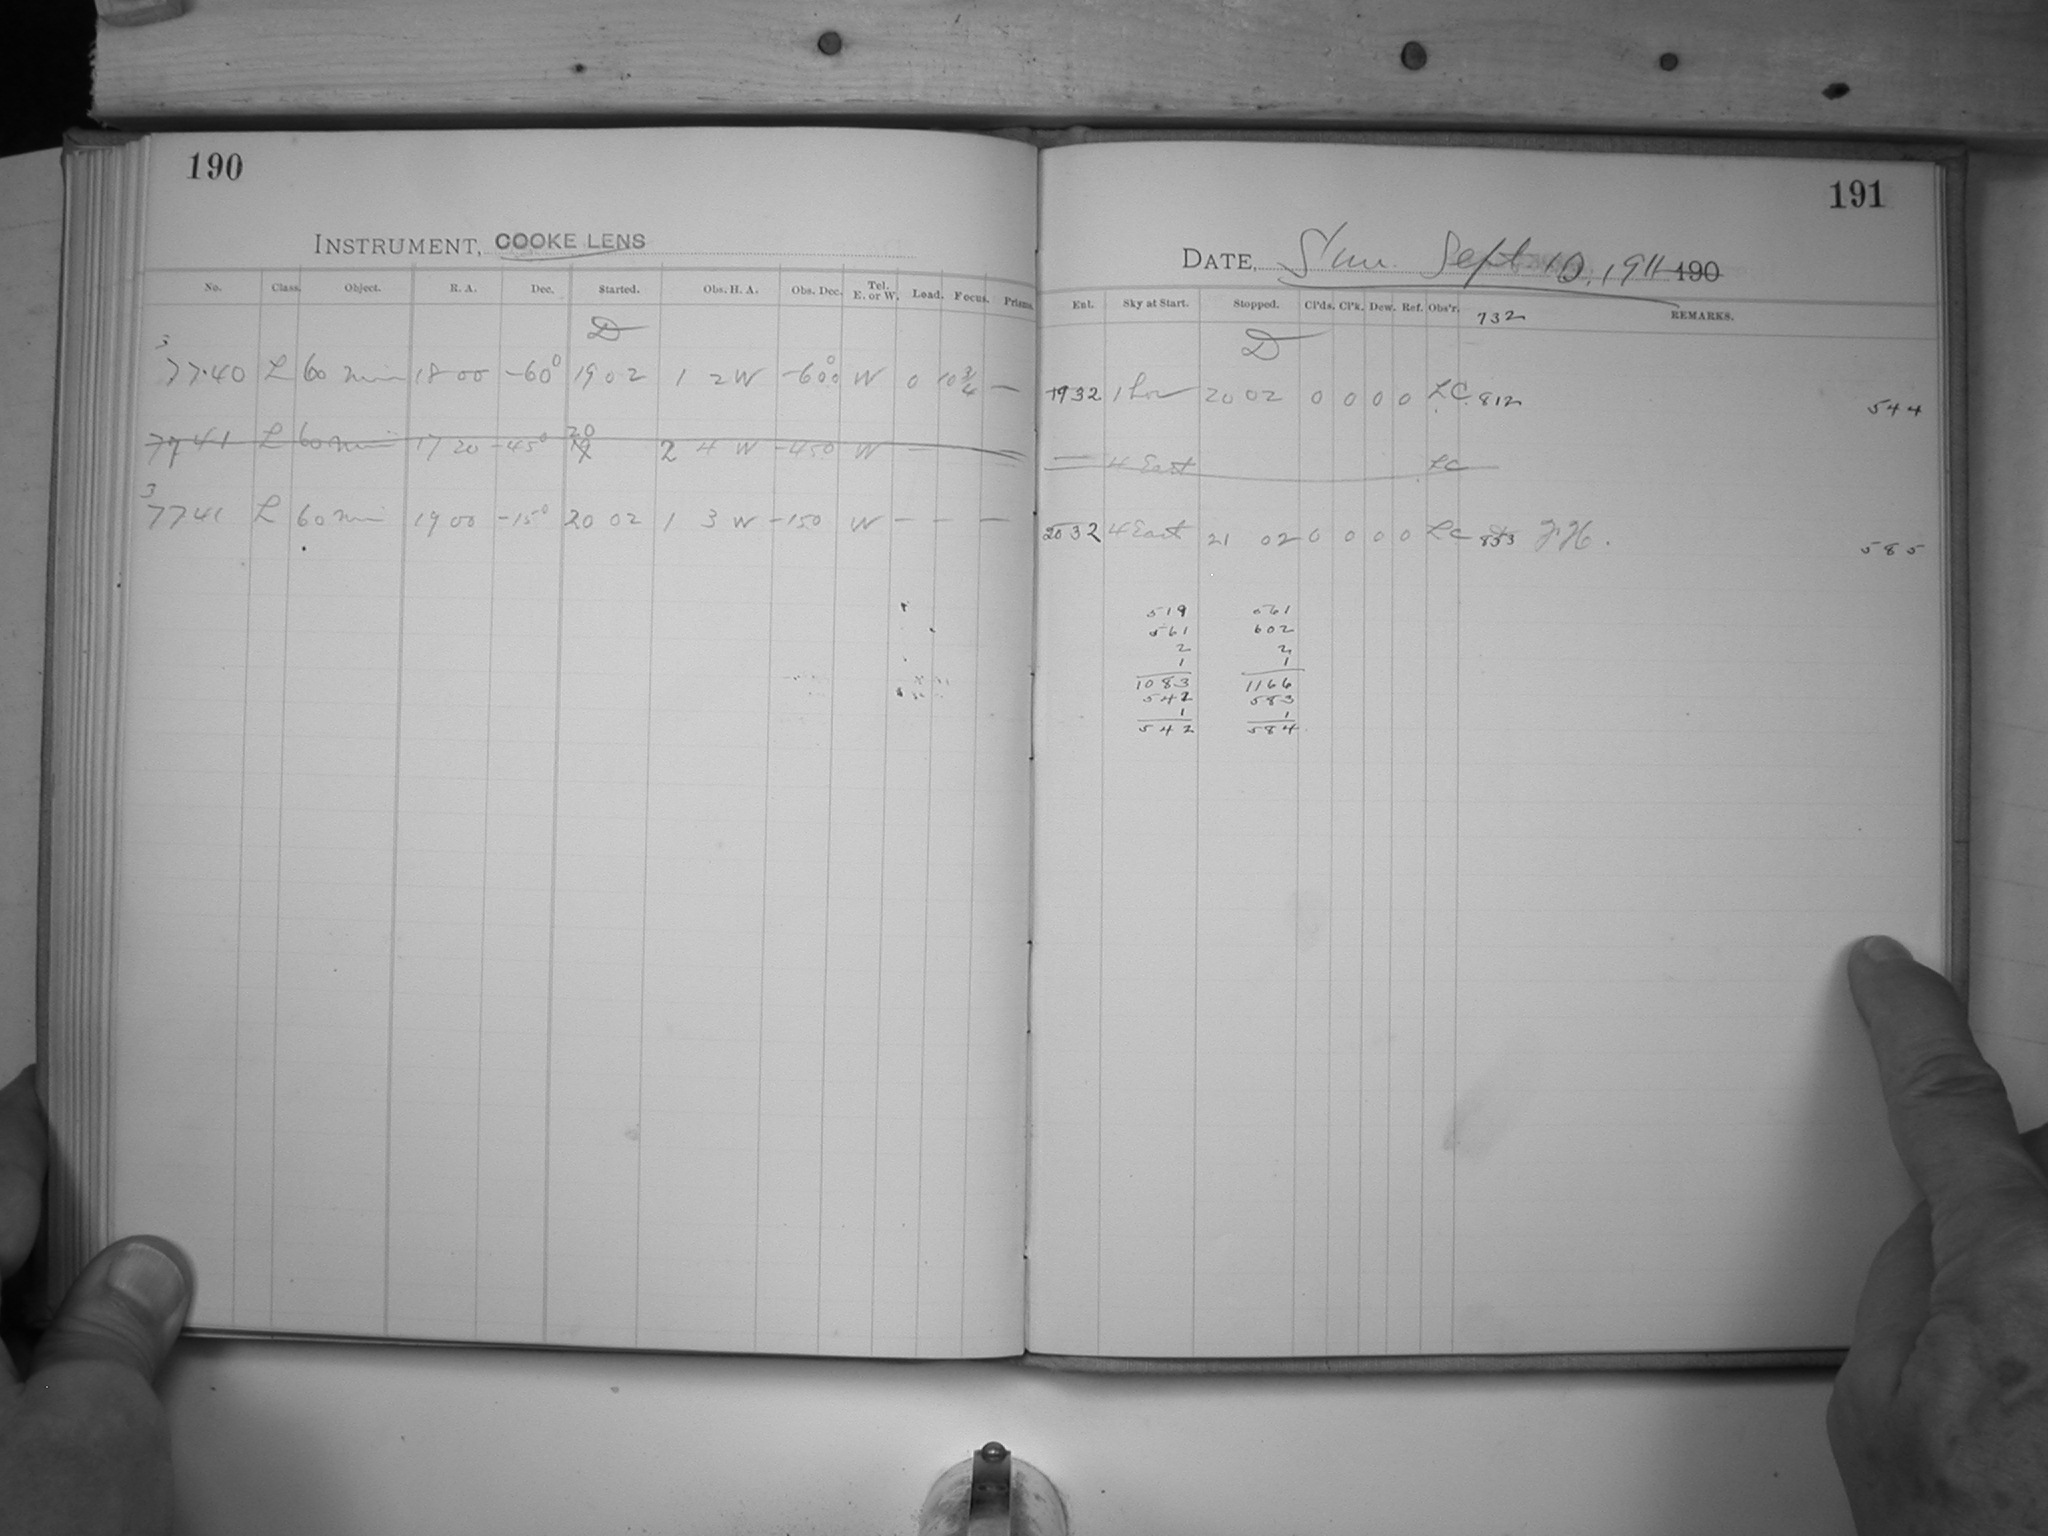 190
INSTRUMENT, COOKE LENS
No. Class. Object. R. A. Dec. Started. Obs. H. A. Obs. Dec. Tel. E. or W. Load. Focus. Prisms.
D
3
7740 L 60 min 18 00 -60° 19 02 1 2 W -60° W 0 10 3/4 —
7741 L 60 min 17 20 -45° 20 2 4 W -450 W —
3
7741 L 60 min 19 00 -15° 20 02 1 3 W -150 W — — —
191
DATE, Sun Sept 10, 1911 190
Ent. Sky at Start. Stopped. Cl'ds. Cl'k. Dew. Ref. Obs'r. 732 REMARKS.
D
1932 20 02 0 0 0 0 LC 812 544
4 East LC
2032 4 East 21 02 0 0 0 0 LC 853 544 585
519 561
561 602
2 2
1 1
1083 1166
542 583
1 1
542 584